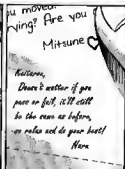 u moved
ying? Are you
Mitsune
Keitaro,
Doesn't matter if you
pass or fail, it'll still
be the same as before,
so relax and do your best!
Naru